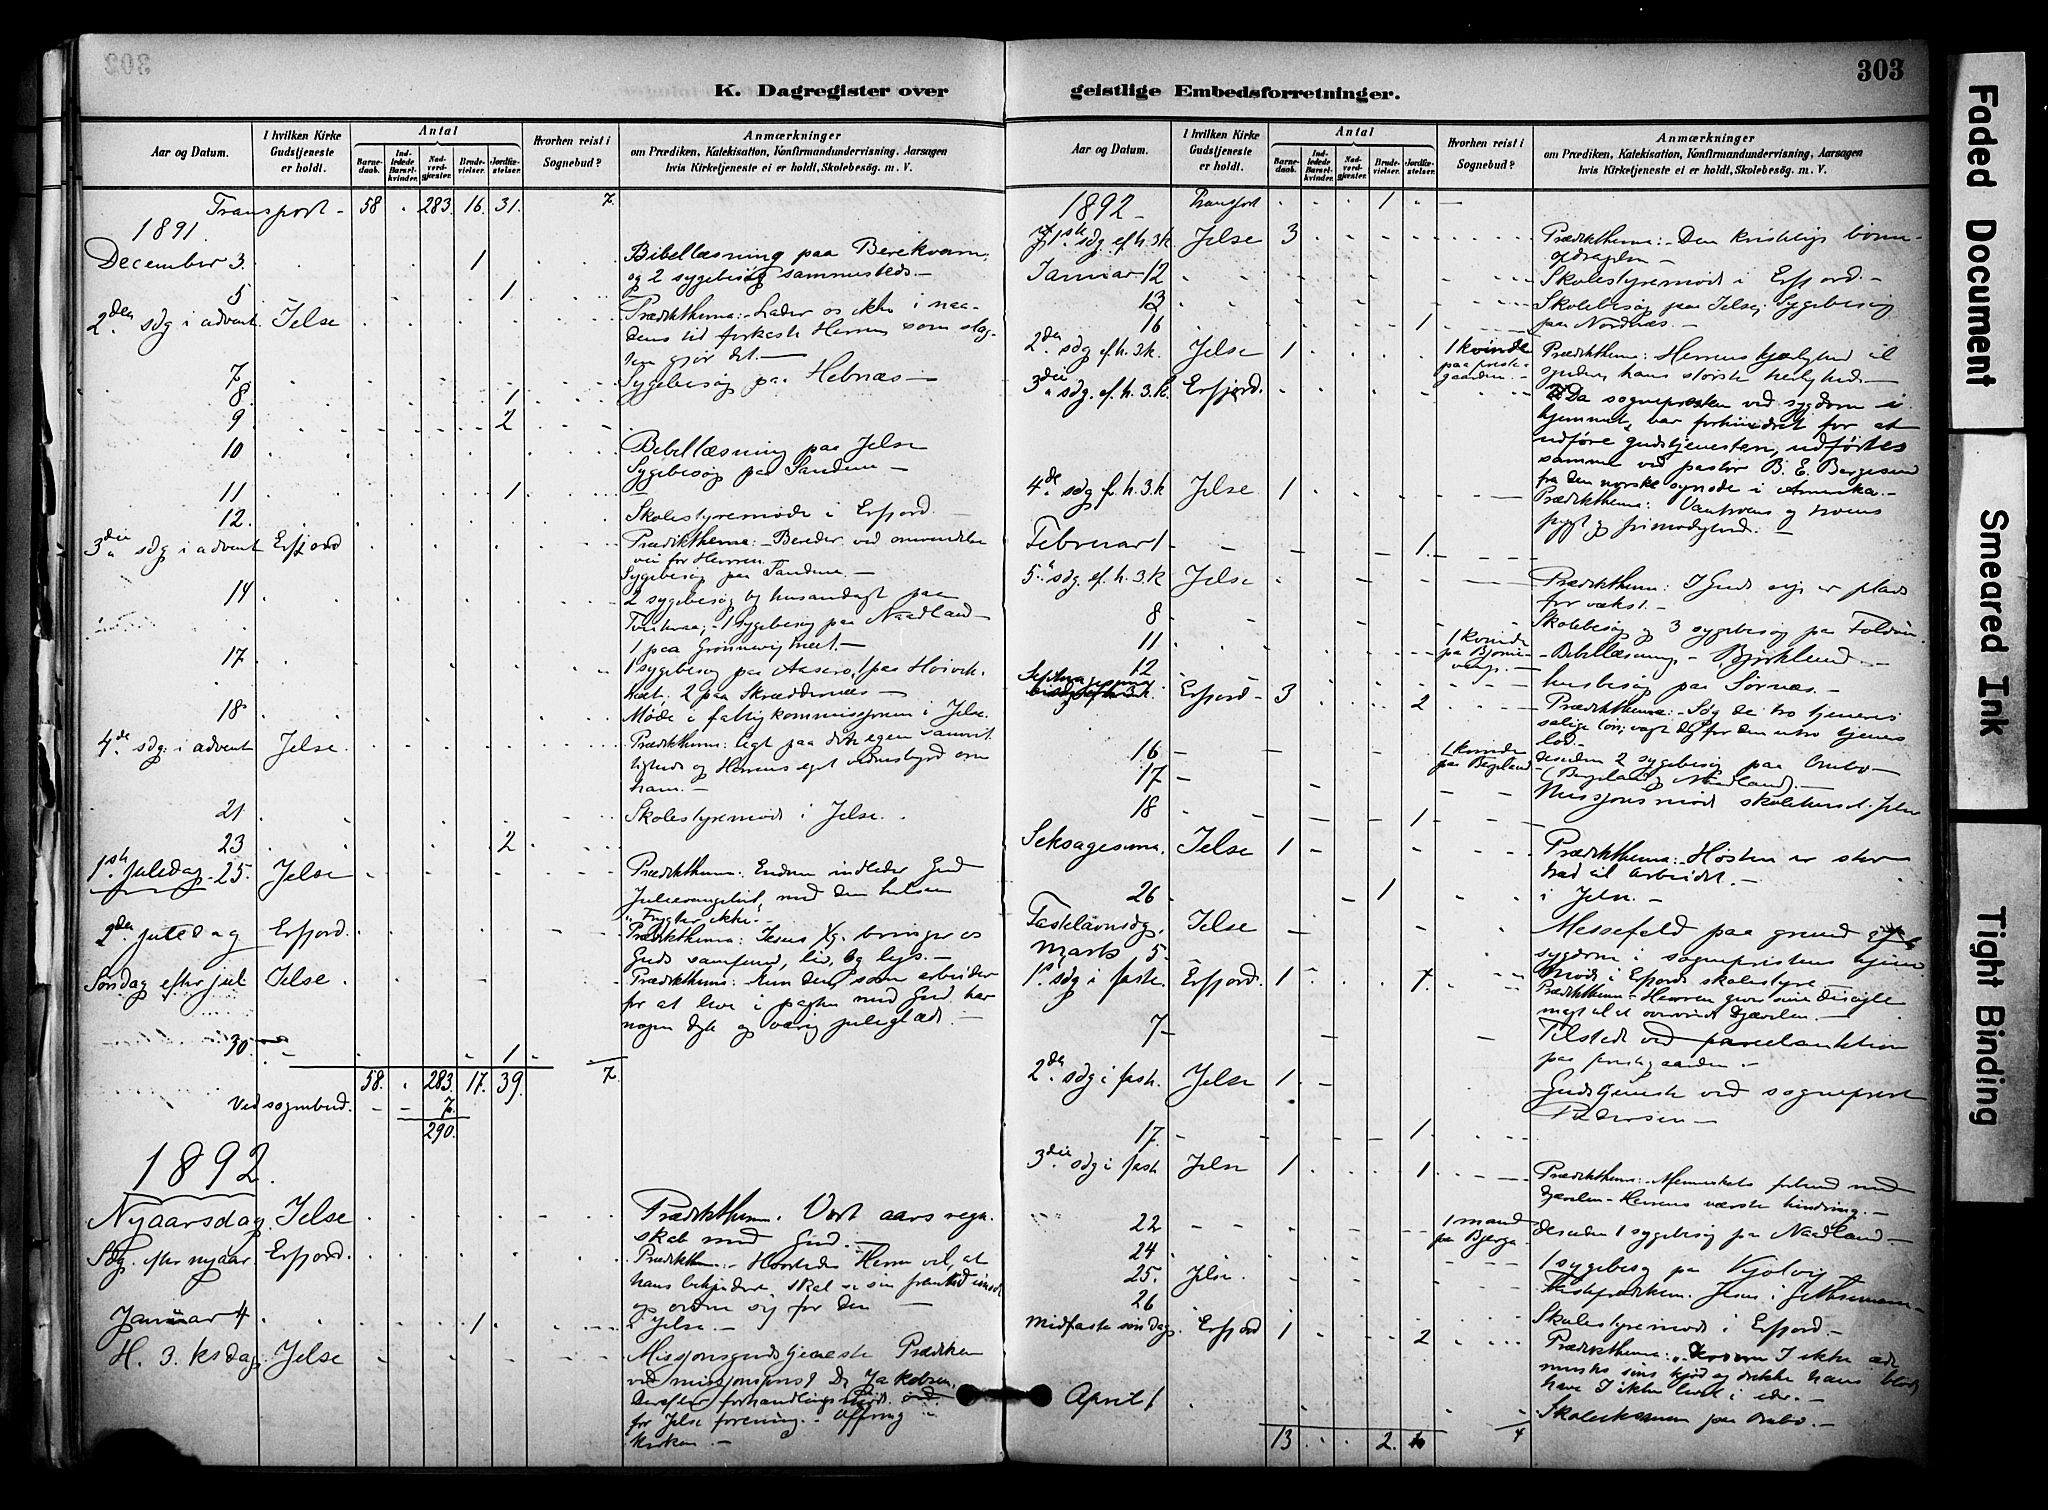 303
K. Dagregister over
geistlige Embedsforretninger.
Aar og Datum.
I hvilken Kirke Gudstjeneste er holdt.
Antal
Barnedaab.
Indledede Barselkvinder.
Nadverdgjæster.
Brudevielser.
Jordfæstelser.
Hvorhen reist i Sognebud?
Anmærkninger
om Prædiken, Katekisation, Konfirmandundervisning, Aarsagen
hvis Kirketjeneste ei er holdt, Skolebesøg. m. V.
Transport - 58 283. 16. 31. 7.
1891.
December 3. 1 Bibellæsning paa Berekvam,
og 2 sygebesøg sammesteds. -
5 1
2den sdg i advent. Jelse Prædikthema: - Lader os ikke i naa-
dens tid forkaste Herren som
gjør det. -
7. Sygebesøg paa Hebnæs -
8. 1
9 2
10 Bibellæsning paa Jelse
Sygebesøg paa Sandene -
11 1
12 Skolestyremøde i Erfjord. -
3die sdg i advent Erfjord Prædikthema: - Bereder ved omvendelse
vei for Herren.
Sygebesøg paa Sandene. -
14 2 sygebesøg og husandagt paa
1 sygebesøg paa Naadland -
1 paa
17 1 sygebesøg paa
2 paa Skreddernæs -
18 Møde i fattigkommissionen i Jelse.
4de sdg i advent Jelse. Prædikthema: Agt paa din egen samvit-
tigheds og Herrens eget vidnesbyrd om
ham. -
21 Skolestyremøde i Jelse.
23 2
1ste juledag - 25. Jelse Prædikthema: Endnu indleder Gud
Juleevangeliet med den hilsen
"Frygter ikke" -
2den juledag Erfjord. Prædikthema: Jesus bringer os
Guds samfund, liv, og lys. -
Søndag efter jul Jelse. Prædikthema: Kun den, som arbeider
for at leve i pagten med Gud, har
nogen dyb og varig juleglæde. -
30. 1
58. 283. 17. 39. 7.
Ved sognebud. 7.
290.
1892.
Nyaarsdag. Jelse Prædikthema. Vort aars regn-
skab med Gud. -
Sdg. efter nyaar Erfjord. Prædikthema: - Hvorledes Herren vil, at
hans bekjendere skal se sin fremtid imøde
og ordne sig for den -
Januar 4 1 i Jelse. -
H. 3. ksdag. Jelse Missionsgudstjeneste Prædiken
ved missionsprest Dr Jakobsen.
Derefter forhandlingsmøde
for Jelse forening. - Offring i
kirken. -
303
Aar og Datum.
I hvilken Kirke Gudstjeneste er holdt.
Antal
Barnedaab.
Indledede Barselkvinder.
Nadverdgjæster.
Brudevielser.
Jordfæstelser.
Hvorhen reist i Sognebud?
Anmærkninger
om Prædiken, Katekisation, Konfirmandundervisning, Aarsagen
hvis Kirketjeneste ei er holdt, Skolebesøg. m. V.
1892 - Transport 1
1ste sdg. ef. h. 3. k. Jelse 3 Prædikthema: - Den kristelige børne-
opdragelse -
Januar 12 Skolestyremøde i Erfjord. -
13 Skolebesøg paa Jelse, Sygebesøg
paa Nordnæs. -
16 1
2den sdg ef. h. 3 k. Jelse 1 1 kvinde
paa preste-
gaarden. - Prædikthema: Herrens kjærlighed til
synderen, hans største herlighed. -
3die sdg. ef. h. 3. k. Erfjord. Da sognepresten ved sygdom i
hjemmet, var forhindret for at
udføre gudstjenesten, udførtes
samme ved pastor B. E. Bergesen
fra den norske synode i Amerika. -
4de sdg ef. h. 3. k Jelse 1 Prædikthema: Vantroens og troens
frygt og frimodighed. -
Februar 1 1
5te sdg ef. h. 3. k Jelse Prædikthema: I Guds rige er plads
for vækst. -
8 Skolebesøg og 3 sygebesøg paa Foldøen
11 1 kvinde - Bibellæsning - Bjørklund -
12 husbesøg paa Sørnæs. -
Septuagesima Erfjord - 3 2 Prædikthema: - Søg de tro tjeneres
salige løn; vogt dig for den utro tjeners
lod. -
16 1 kvinde
paa Bergeland desuden 2 sygebesøg paa Ombo -
17 - (Bergeland og Naadland). -
18 1 Missionsmøde skolehuset Jelse
Seksagesima. Jelse 1 Prædikthema: - Høsten er stor
til arbeidet. -
26 1 i Jelse. -
Fastelavnsdg. Jelse Messefald paa grund af
Marts 5. sygdom i sogneprestens hjem
Møde i Erfjords skolestyre -
1ste sdg i faste. Erfjord. 1 Prædikthema - Herren giver sine disciple
magt til at overvinde Djævelen. -
7 - Tilstede ved parcelauktion
paa prestegaarden. -
2den sdg i fast. Jelse 1 Gudstjeneste ved sogneprest
Pedersen -
17. 1
3die sdg i fast. Jelse 1 1 Prædikthema: - Menneskets forbund med
Djævelen - Herrens værste hindring. -
22 1 mand
paa Bjerga desuden 1 sygebesøg paa Naadland. -
24 1 sygebesøg paa
25. Jelse. Fasteprædiken. Jesus i Getsemane -
26 Skolestyremøde i Erfjord. -
Midfaste søndag. Erfjord 1 2 Prædikthema: " I ikke æde
menneskets søns kjød og drikke hans blod,
have I ikke livet i eder. -
April 1 Skoleeksamen paa Ombo. -
13 2. 4
Faded Document
Smeared Ink
Tight Binding